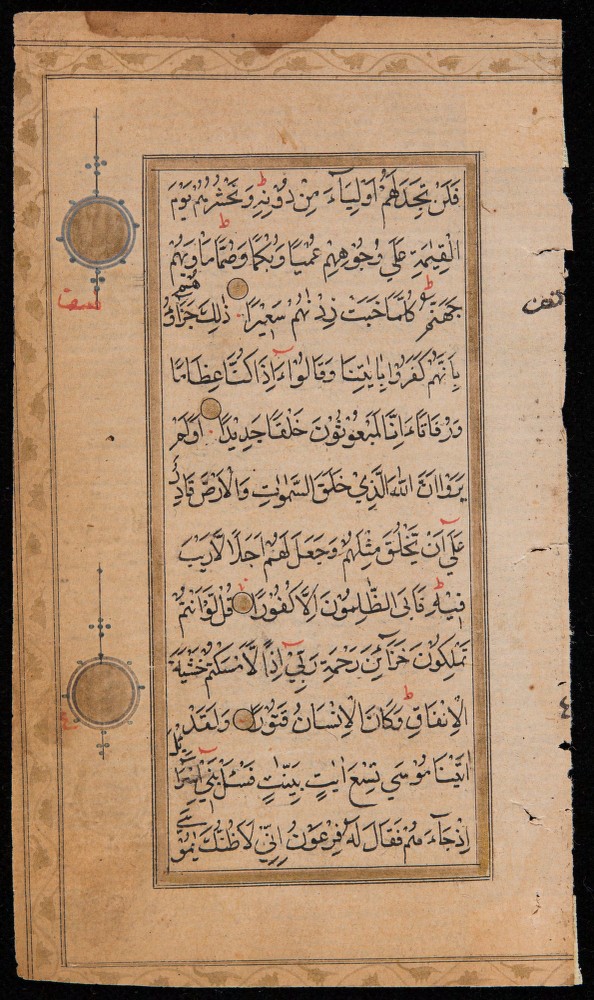 فَلَنْ تَجِدَ لَهُمْ اَوْلِيَآءَ مِنْ دُوْنِهٖ ط وَنَحْشُرُهُمْ يَوْمَ
الْقِيٰمَةِ عَلٰي وُجُوْهِهِمْ عُمْيًا وَبُكْمًا وَصُمًّا ط مَاوٰىهُمْ
جَهَنَّمُ ط كُلَّمَا خَبَتْ زِدْنٰهُمْ سَعِيْرًا ذٰلِكَ جَزَاؤُهُمْ
بِاَنَّهُمْ كَفَرُوْا بِاٰيٰتِنَا وَقَالُوْا ءَاِذَا كُنَّا عِظَامًا
وَرُفَاتًا ءَاِنَّا لَمَبْعُوْثُوْنَ خَلْقًا جَدِيْدًا اَوَلَمْ
يَرَوْا اَنَّ اللهَ الَّذِيْ خَلَقَ السَّمٰوٰتِ وَالْاَرْضَ قَادِرٌ
عَلٰٓي اَنْ يَّخْلُقَ مِثْلَهُمْ وَجَعَلَ لَهُمْ اَجَلًا لَّا رَيْبَ
فِيْهِ ط فَاَبَى الظّٰلِمُوْنَ اِلَّا كُفُوْرًا قُلْ لَّوْ اَنْتُمْ
تَمْلِكُوْنَ خَزَآئِنَ رَحْمَةِ رَبِّيْٓ اِذًا لَّاَمْسَكْتُمْ خَشْيَةَ
الْاِنْفَاقِ ط وَكَانَ الْاِنْسَانُ قَتُوْرًا وَلَقَدْ
اٰتَيْنَا مُوْسٰي تِسْعَ اٰيٰتٍ بَيِّنٰتٍ فَسْئَلْ بَنِيْٓ اِسْرَآئِيْلَ
اِذْ جَآءَهُمْ فَقَالَ لَهٗ فِرْعَوْنُ اِنِّيْ لَاَظُنُّكَ يٰمُوْسٰي